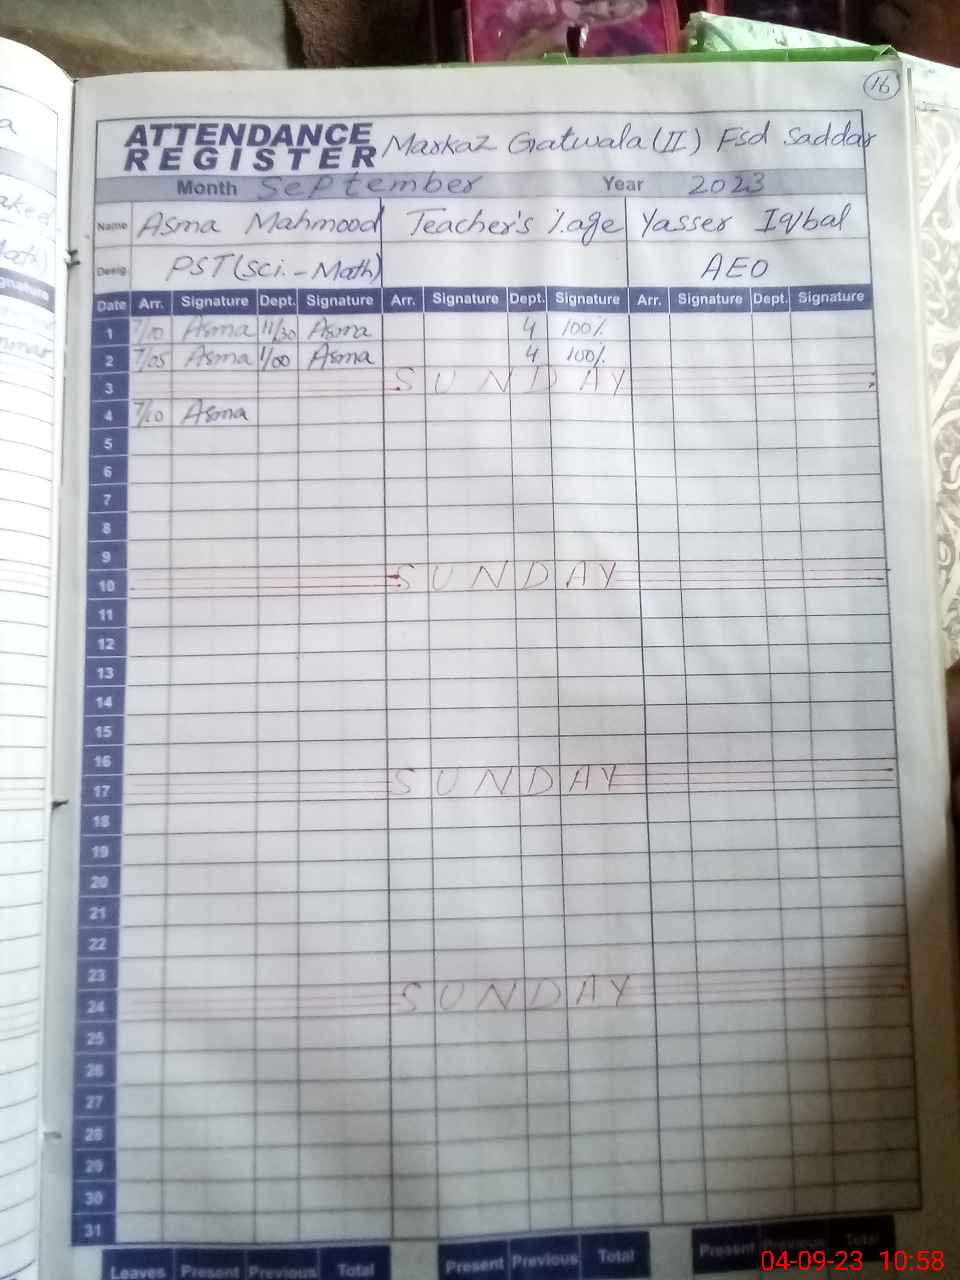 16
ATTENDANCE REGISTER Markaz Gatwala (II) Fsd Saddar
Month September Year 2023
Name Asma Mahmood Teacher's %age Yasser Iqbal
Desig. PST (Sci.-Math) AEO
Date Arr. Signature Dept. Signature Arr. Signature Dept. Signature Arr. Signature Dept. Signature
1 7/10 Asma 11/30 Asma 4 100%
2 7/05 Asma 1/00 Asma 4 100%
3 SUNDAY
4 7/10 Asma
5
6
7
8
9
10 SUNDAY
11
12
13
14
15
16
17 SUNDAY
18
19
20
21
22
23
24 SUNDAY
25
26
27
28
29
30
31
Leaves Present Previous Total Present Previous Total Present Previous Total
04-09-23 10:58